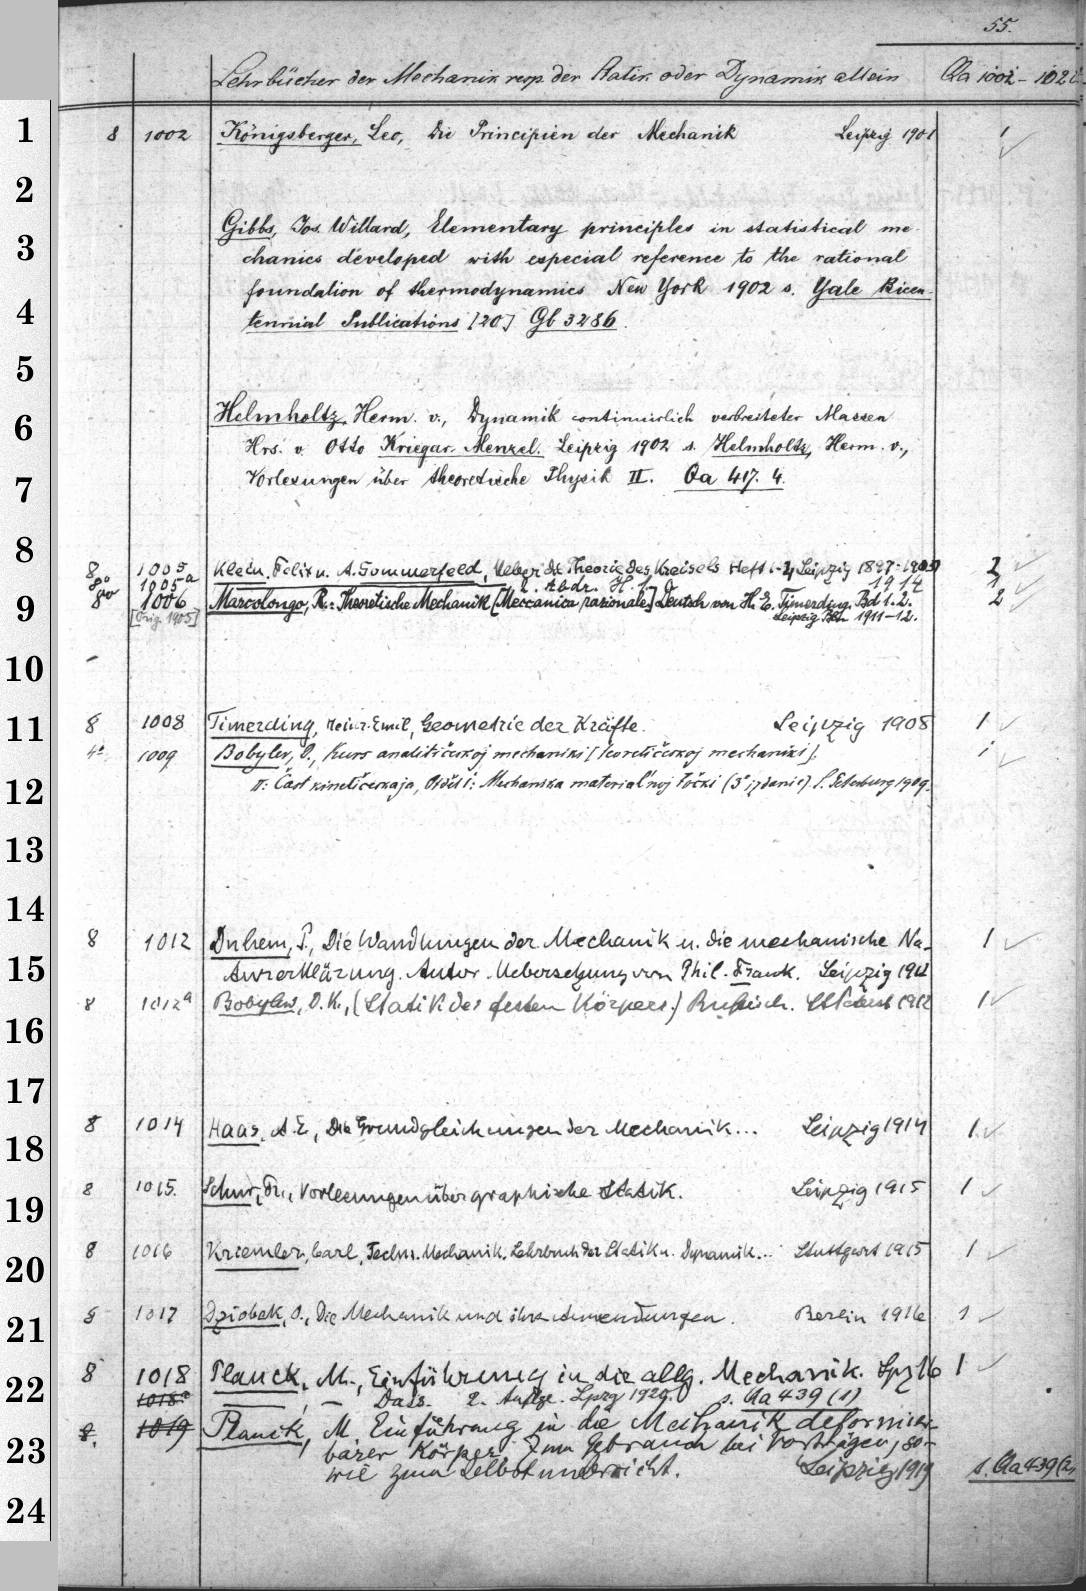 55.
Lehrbücher der Mechanik resp. der Statik oder Dynamik allein Qa 1002 - 102
1 8 1002 Königsberger, Leo, Die Principien der Mechanik Leipzig 1901 1 ✓
2
Gibbs, Jos. Willard, Elementary principles in statistical me-
3 chanics developed with especial reference to the rational
foundation of thermodynamics New York 1902 s. Yale Bicen-
4 tennial Publications [20] Gb 3286.
5
6 Helmholtz, Herm. v., Dynamik continuirlich verbreiteter Massen
Hrs. v. Otto Kriegar-Menzel. Leipzig 1902 s. Helmholtz, Herm. v.,
7 Vorlesungen über theoretische Physik II. Qa 417. 4.
8
8 1005 Klein, Felix u. A. Sommerfeld, Ueber die Theorie des Kreisels Heft 1-4 Leipzig 1897-1903 2 ✓
8° 1005a 2. Abdr. H. 1. 1914 1 ✓
9 8vo 1006 Marcolongo, R.: Theoretische Mechanik [Meccanica razionale.] Deutsch von H. E. Timerding. Bd 1. 2. 2 ✓
[Orig. 1905] Leipzig 1911-12.
10 –
11 8 1008 Timerding, Heinr. Emil, Geometrie der Kräfte. Leipzig 1908 1 ✓
4° 1009 Bobylev, D., Kurs analitičeskoj mechaniki [teoretičeskoj mechaniki]. 1 ✓
12 II: Čast kinetičeskaja, Otděl 1: Mechanika material'noj točki (3e izdanie) S. Peterburg 1909.
13
14
8 1012 Duhem, P., Die Wandlungen der Mechanik u. die mechanische Na- 1 ✓
15 turerklärung. Autor. Uebersetzung von Phil. Frank. Leipzig 1912
8 1012a Bobylew, D. K., (Statik des festen Körpers.) Russisch. 1912 1 ✓
16
17
8 1014 Haas, A. E., Die Grundgleichungen der Mechanik... Leipzig 1914 1 ✓
18
8 1015. Schur, Fr., Vorlesungen über graphische Statik. Leipzig 1915 1 ✓
19
8 1016 Kriemler, Carl, Techn. Mechanik. Lehrbuch der Statik u. Dynamik... Stuttgart 1915 1 ✓
20
8 1017 Dziobek, O., Die Mechanik und ihre Anwendungen. Berlin 1916 1 ✓
21
8 1018 Planck, M., Einführung in die allg. Mechanik. Lpz 16 1 ✓
22 1018a — Dass. 2. Aufl. Lpzg 1920. s. Qa 439 (1)
8. 1019 Planck, M. Einführung in die Mechanik deformier-
23 barer Körper. Zum Gebrauch bei Vorträgen, so-
wie zum Selbstunterricht. Leipzig 1919 s. Qa 439 (2)
24